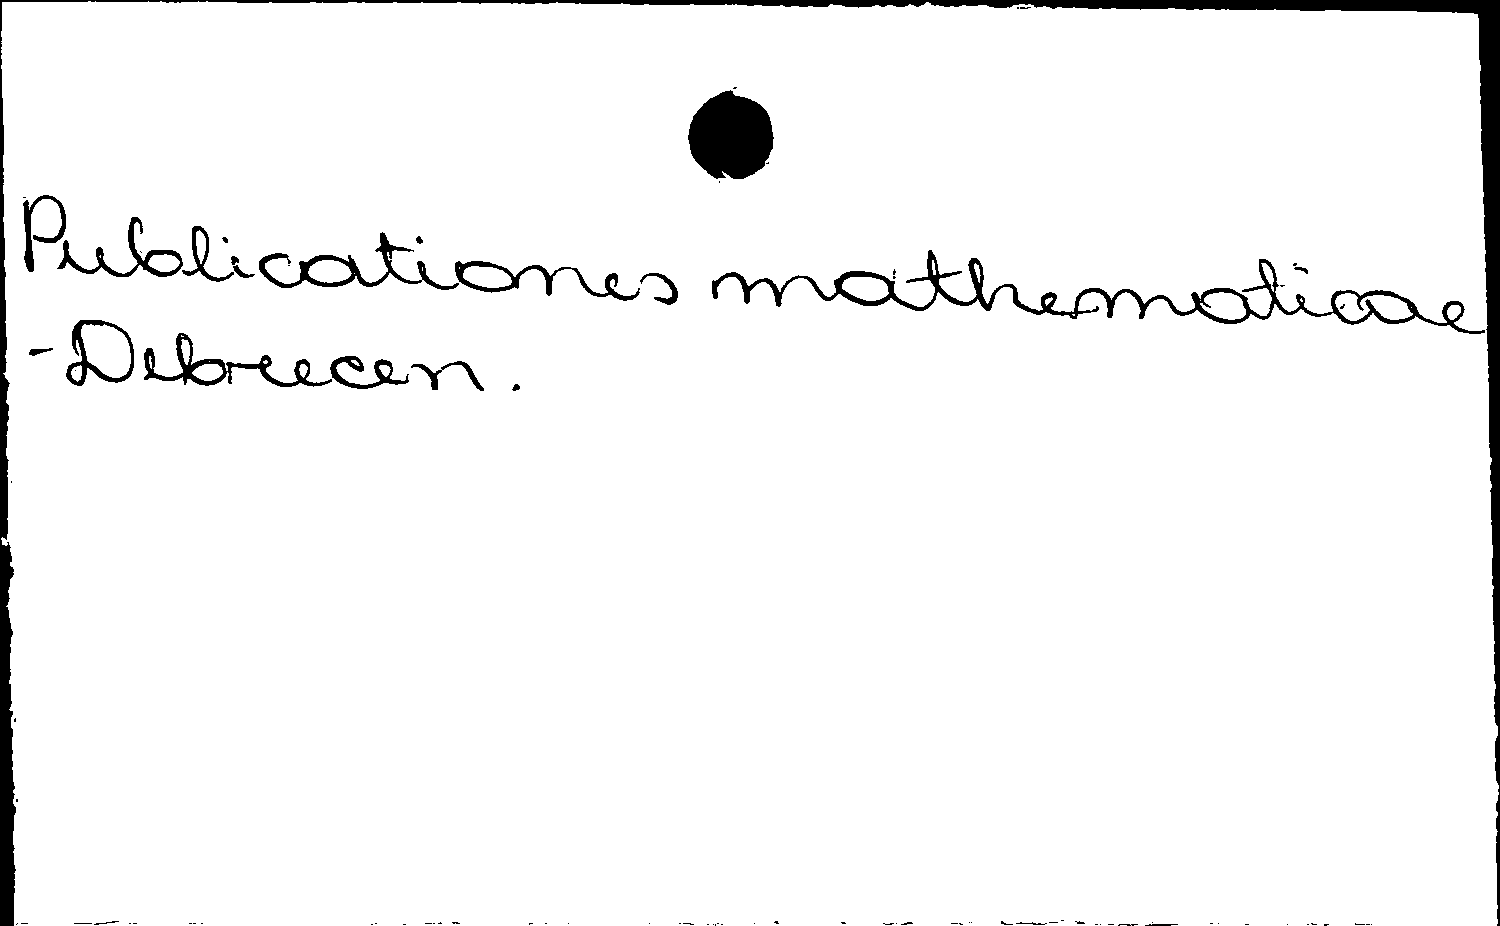 Publicationes mathematicae
-Debrecen.